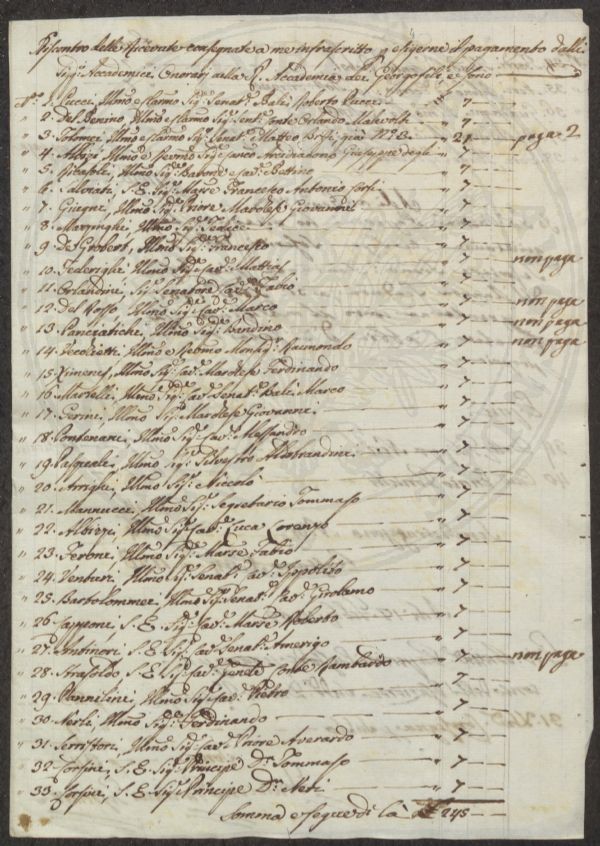 Riscontro delle Ricevute consegnate a me infrascritto p esigerne il pagamento dalli
Sigri. Accademici Onorarj della R. Accademia dei Georgofili, e sono
N° 1. Pucci, Illmo e Clarmo Sig: Senat: Balì Roberto Pucci " 7 —
" 2. Del Benino, Illmo e Clarmo Sig: Sent: Conte Orlando Malevolti " 7 —
" 3. Tolomei Illmo e Clarmo Sig: Senat: Matteo Biffi, già N. 78 " 21 — paga 2
" 4. Albizi Illmo e Revmo Sig: Giuseppe degli " 7 —
" 5. Ricasoli, Illmo Sig: Barone e Cav: Bettino " 7 —
" 6. Salviati, S. E. Sig: Marse Francesco Antonio Corsi " 7 —
" 7. Giugni, Illmo Sig: Priore Marchese Giovanni " 7 —
" 8. Maringhi, Illmo Sig: Fedele " 7 —
" 9. De Grobert, Illmo Sig: Francesco " 7 —
" 10. Federighi, Illmo Sig: Cav: Mattias " 7 — non paga
" 11. Orlandini, Sig: Senatore Cav: Fabio " 7 —
" 12. Del Rosso, Illmo Sig: Cav: Marco " 7 — non paga
" 13. Panciatichi, Illmo Sig: Bandino " 7 — non paga
" 14. Vecchietti, Illmo e Revmo Monsig: Raimondo " 7 — non paga
" 15. Ximenes, Illmo Sig: Cav: Marchese Ferdinando " 7 —
" 16. Martelli, Illmo Sig: Cav: Senat: Balì Marco " 7 —
" 17. Gerini, Illmo Sig: Marchese Giovanni " 7 —
" 18. Pontenani, Illmo Sig: Cav: Alessandro " 7 —
" 19. Pasquali, Illmo Sig: Silvestro Aldobrandini " 7 —
" 20. Arrighi, Illmo Sig: Niccolò " 7 —
" 21. Mannucci, Illmo Sig: Segretario Tommaso " 7 —
" 22. Albizzi, Illmo Sig: Cav: Luca Lorenzo " 7 —
" 23. Feroni, Illmo Sig: Marse Fabio " 7 —
" 24. Venturi, Illmo Sig: Senat: Cav: Ippolito " 7 —
" 25. Bartolommei, Illmo Sig: Senat: Cav: Girolamo " 7 —
" 26. Capponi, S. E. Sig: Cav: Marse Roberto " 7 —
" 27. Antinori, S. E. Sig: Cav: Senat: Amerigo " 7 —
" 28. Strasoldo, S. E. Sig: Cav: Conte Rambardo " 7 — non paga
" 29. Pannilini, Illmo Sig: Cav: Pietro " 7 —
" 30. Nerli, Illmo Sig: Ferdinando " 7 —
" 31. Serristori, Illmo Sig: Cav: Priore Averardo " 7 —
" 32. Corsini, S. E. Sig: Principe Dn: Tommaso " 7 —
" 33. Corsini, S. E. Sig: Principe Dn: Neri " 7 —
Somma e segue di là 245 —